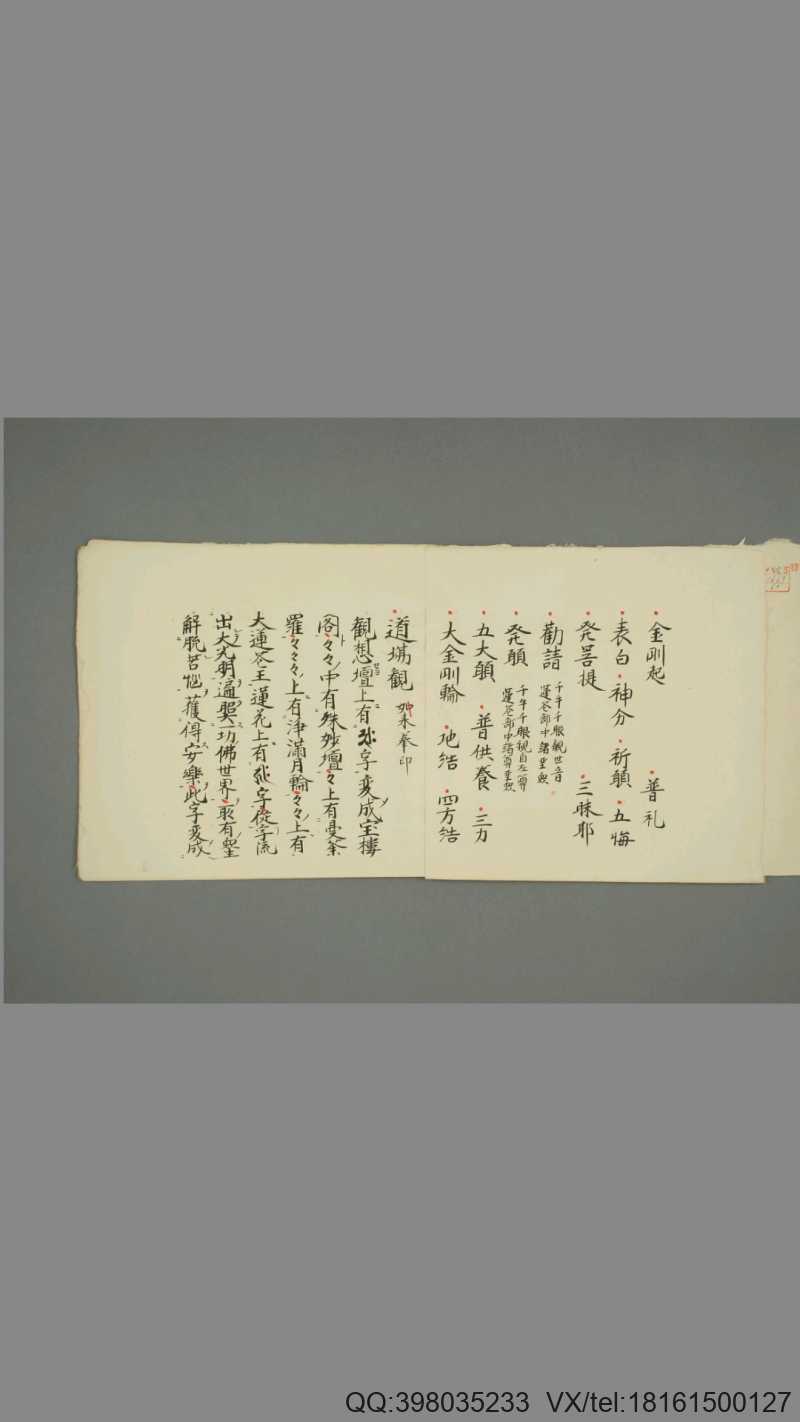 金剛起　普礼
表白　神分　祈願　五悔
発菩提　三昧耶
勸請　千手千眼観世音
蓮花部中諸聖衆
発願　千手千眼観自在尊
蓮花部中諸尊聖衆
五大願　普供養　三力
大金剛輪　地結　四方結
道場観　如来拳印
観想壇上有字変成宝楼
閣々々中有殊妙壇々上有曼荼
羅々々々上有浄満月輪々々上有
大蓮花王蓮花上有字従字流
出大光明遍照一切佛世界所有聖
解脱苦悩獲得安樂此字変成
QQ:398035233 VX/tel:18161500127